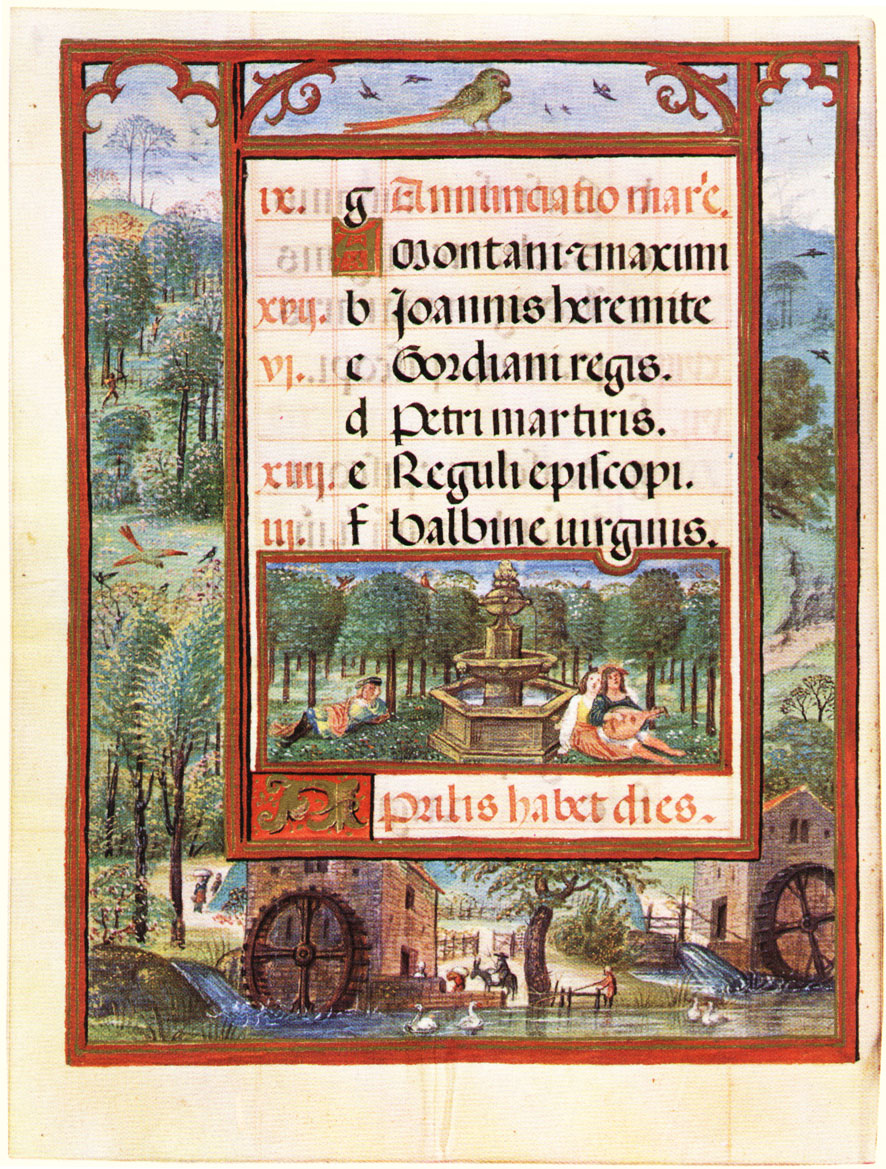 ix. g Annunciatio mar'e.
A Montani ⁊ maximi
xvij. b Joannis heremite
vj. c Gordiani regis.
d Petri martiris.
xiiij. e Reguli episcopi.
iij. f Balbine uirginis.
Aprilis habet dies.